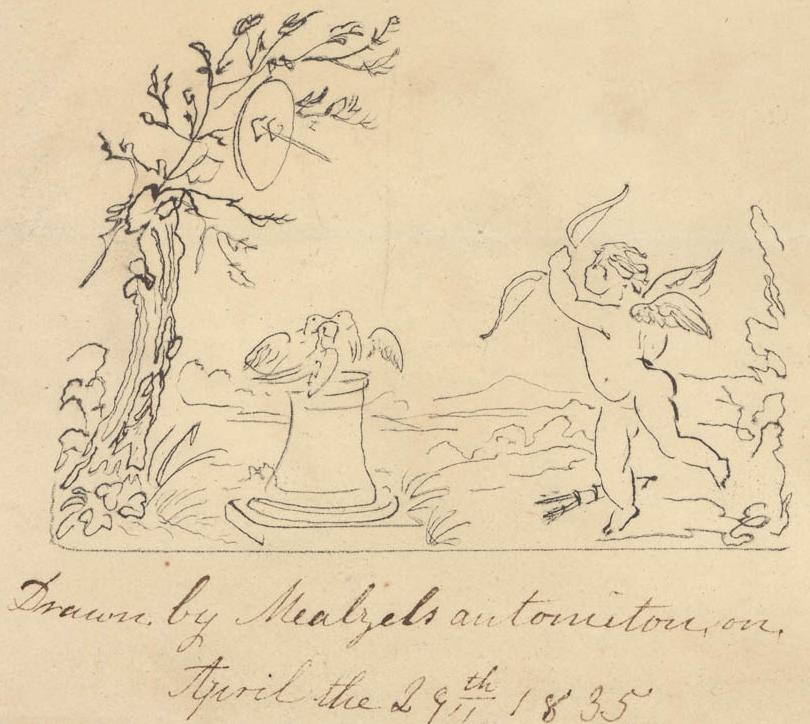 Drawn by Mealzels automiton, on,
April the 29th 1835